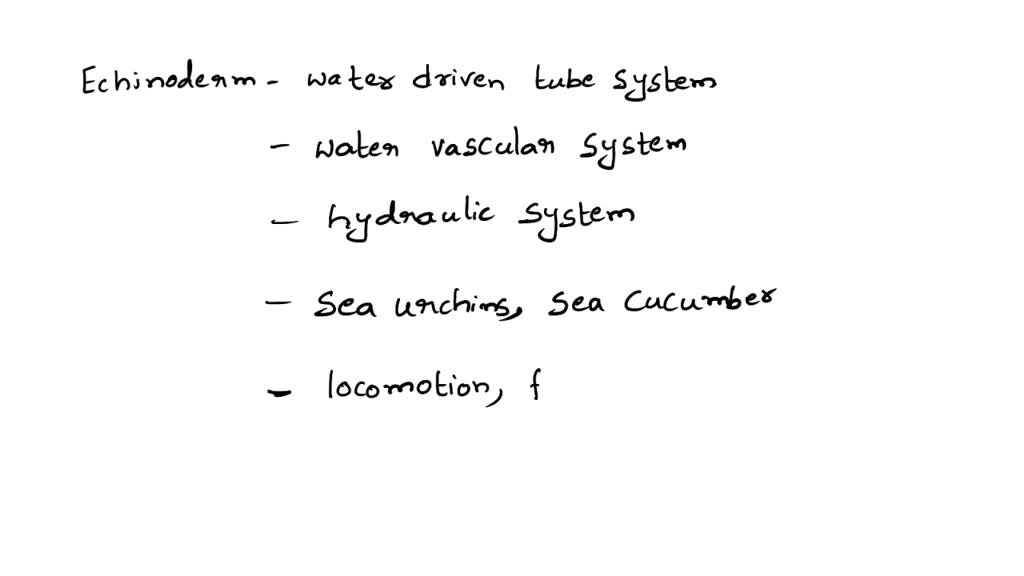 Echinoderm - water driven tube system
- water vascular system
- hydraulic system
- Sea urchins, Sea cucumber
- locomotion, f